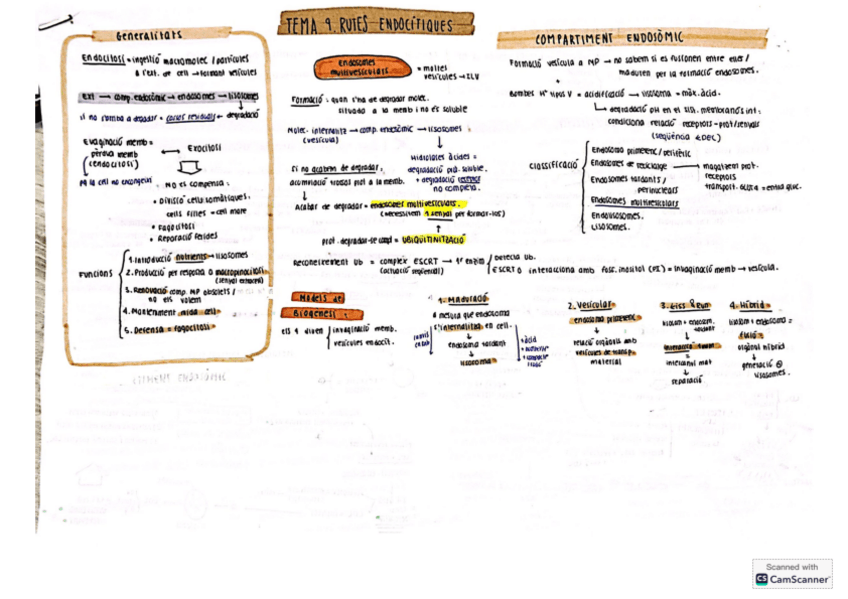 TEMA 9. RUTES ENDOCÍTIQUES
Generalitats
Endocitosi = ingestió macromolec / partícules
a l'ext. de cell → formant vesícules
EXT → comp. endosòmic → endosomes → lisosomes
si no s'omba a degradar = cossos residuals ← degradació
Evaginació memb =
pèrdua memb
(endocitosi)
Exocitosi
Mg la cell no encongeixi
NO es compensa:
• Divisió cells somàtiques.
cells filles = cell mare
• Fagocitosi
• Reparació ferides
Funcions
1. Introducció nutrients → lisosomes
2. Producció per resposta a macropinocitosi
(senyal externa)
3. Renovació comp. MP obsolets /
no els volem
4. Manteniment mida cell
5. Defensa = fagocitosi
Endosomes
multivesiculars
= moltes
vesícules → ILV
Formació: quan s'ha de degradar molec.
situada a la memb i no és soluble
Molec. internalitz → comp. endosòmic → lisosomes
(vesícula)
Hidrolases àcides =
degradació prot. soluble.
+ degradació
no completa.
Si no acabem de degradar,
acumulació trossos prot a la memb.
Acabar de degradar = endosomes multivesiculars.
(necessitem 1 senyal per formar-los)
prot. degradar-se compl = UBIQUITINITZACIÓ
Reconeixement Ub = complex ESCRT → 1r enzim
(actuació seqüencial)
Detecta Ub.
ESCRT 0 interacciona amb fosf. inositol (PI) = Invaginació memb → vesícula.
Models de
Biogènesi
els 4 diuen
invaginació memb.
vesícules endocít.
1. Maduració
a mesura que endosoma
s'internalitza en cell.
endosoma tardà
lisosoma
+ àcid
2. Vesicular
endosoma primerenc
relació orgànuls amb
vesícules de transp.
material
3. Kiss & Run
lisosom + endosom.
tardà
intercanvi mat
separació
4. Híbrid
lisosom + endosoma =
fusió =
orgànul híbrid
generació
lisosomes.
COMPARTIMENT ENDOSÒMIC
Formació vesícula a MP → no sabem si es fusionen entre elles /
maduren per la formació endosomes.
+
Bombes H⁺ tipus V = acidificació → lisosoma = màx. àcid.
degradació pH en el sist. membranós int.
condiciona relació receptors - prot/senyals
(seqüència KDEL)
Classificació
Endosoma primerenc / perifèric
Endosomes de reciclatge → magatzem prot.
receptors
transport. GLUT4 = entra gluc.
Endosomes tardans /
perinuclears
Endosomes multivesiculars
Endolisosomes.
Lisosomes.
Scanned with
CS CamScanner